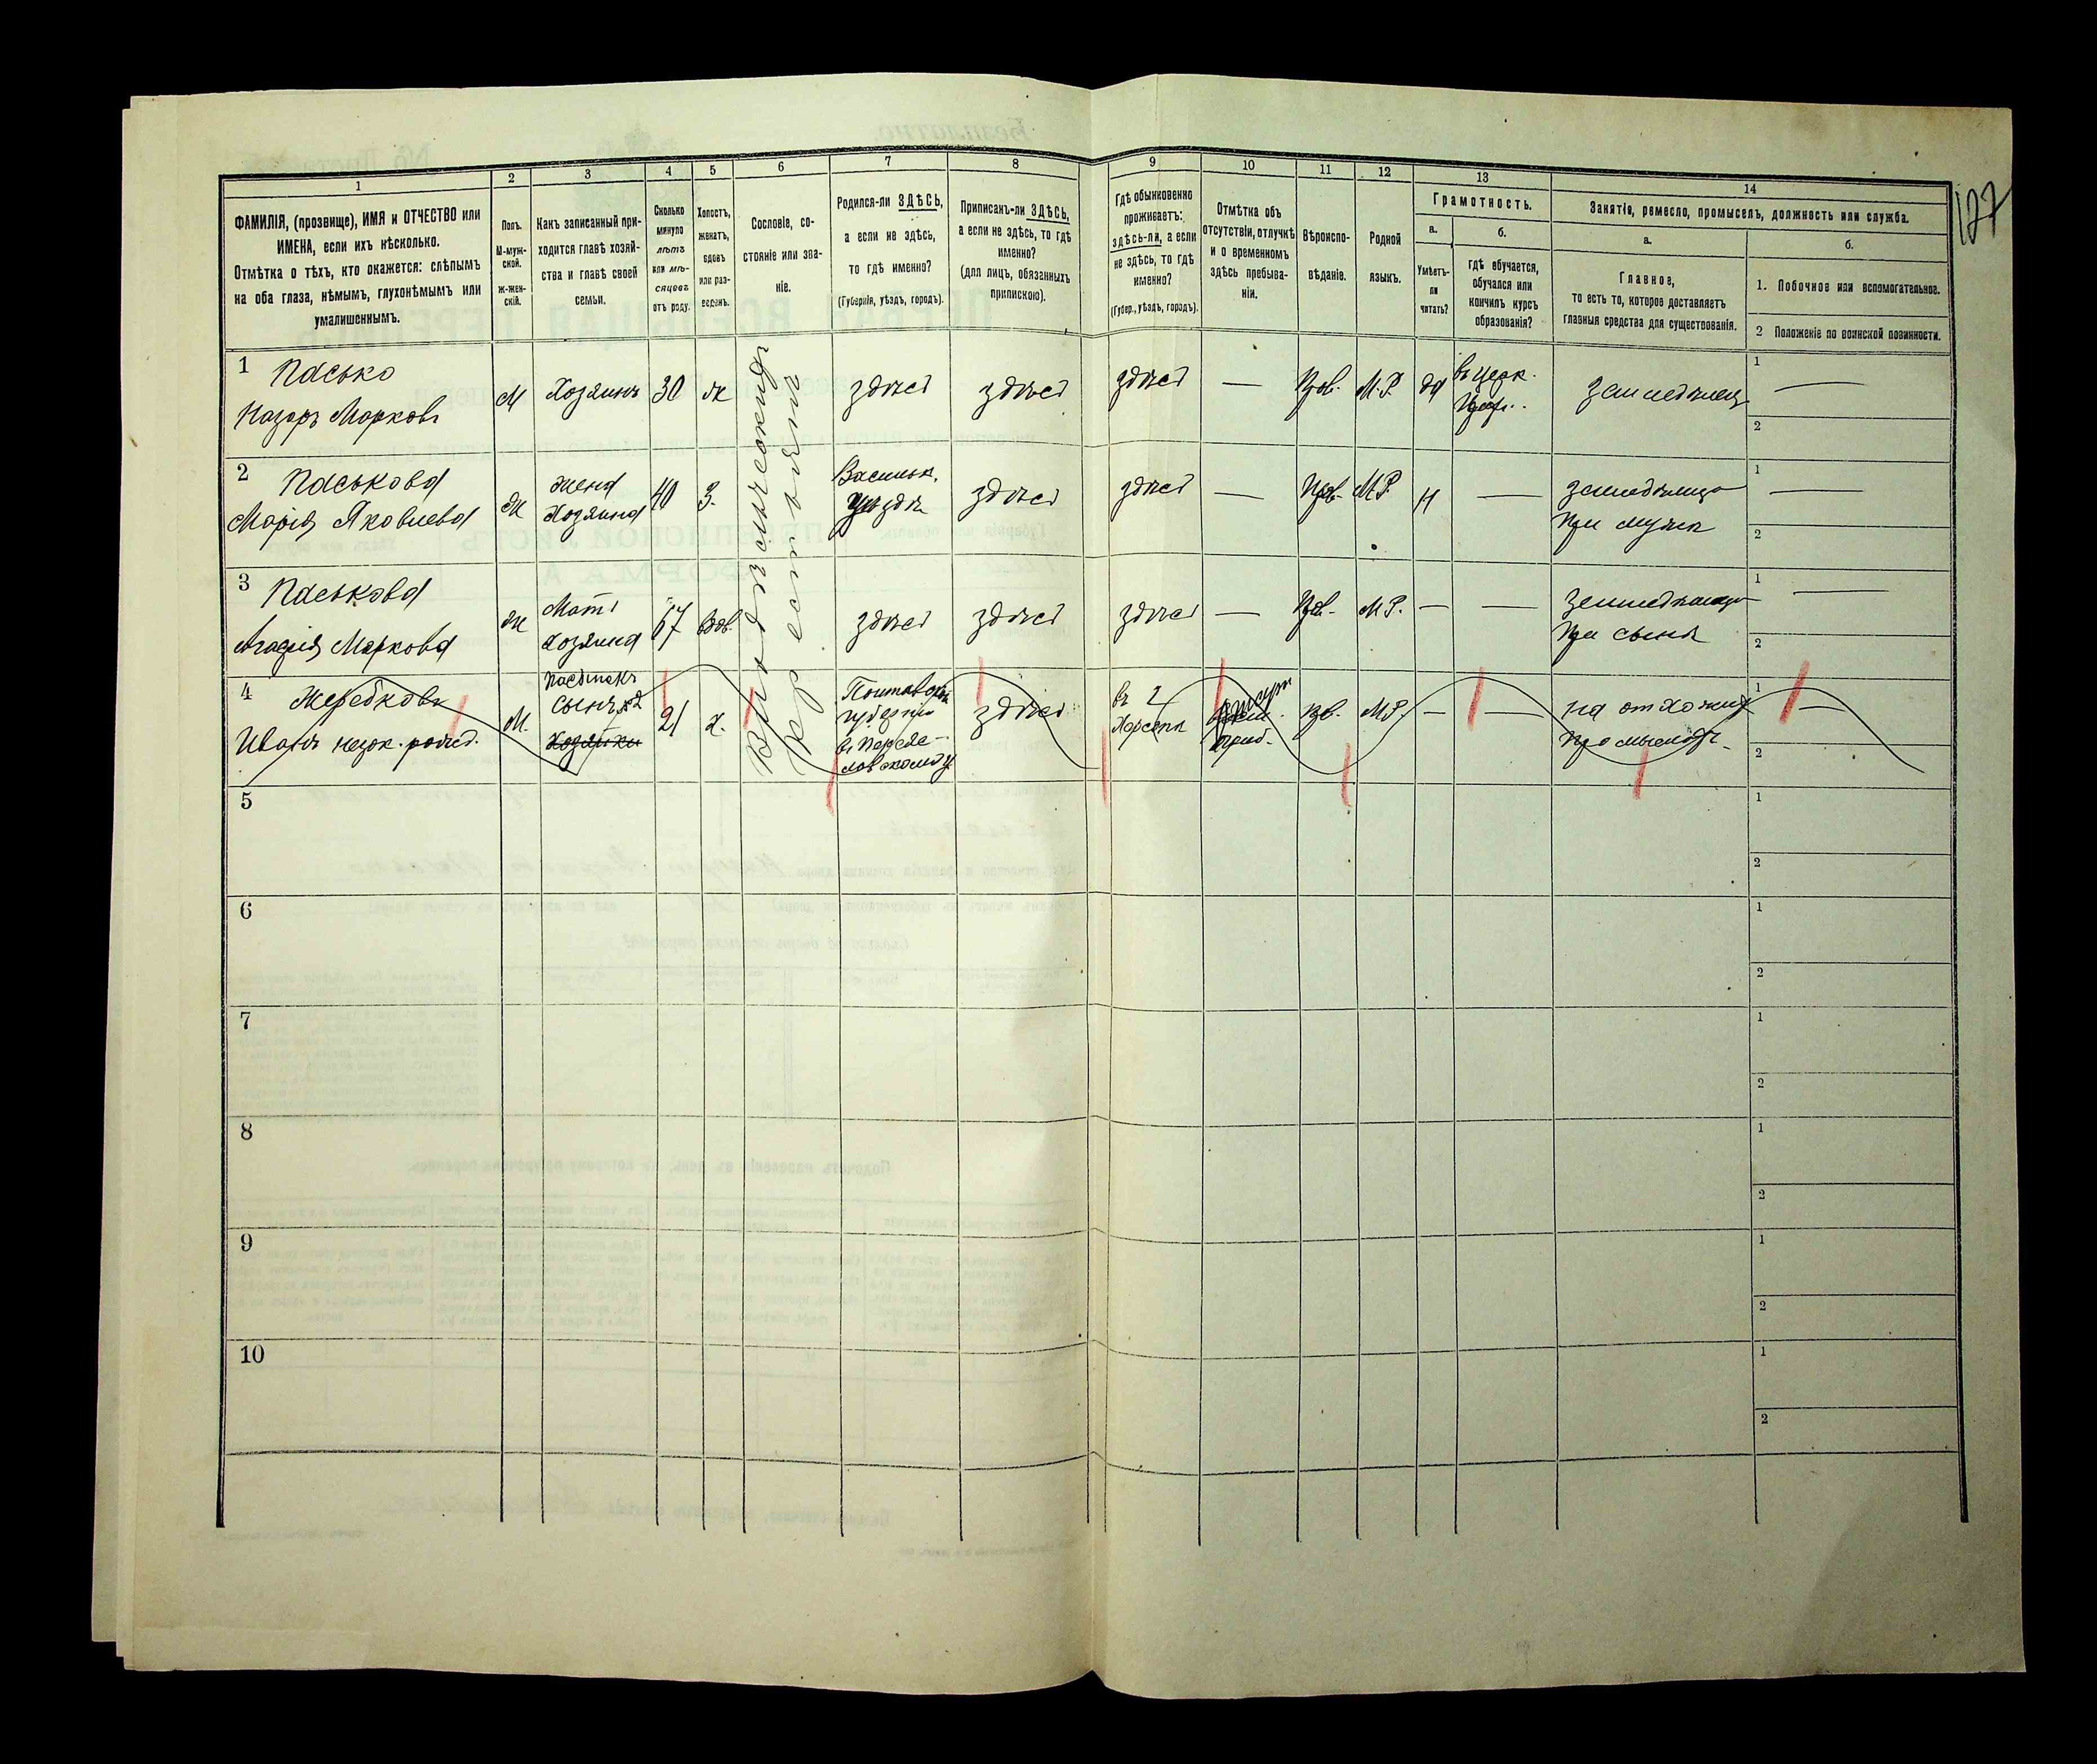 127
1 2 3 4 5 6 7 8 9 10 11 12 13 14
ФАМИЛІЯ, (прозвище), ИМЯ и ОТЧЕСТВО или
ИМЕНА, если ихъ нѣсколько.
Отмѣтка о тѣхъ, кто окажется: слѣпымъ
на оба глаза, нѣмымъ, глухонѣмымъ или
умалишеннымъ.
Полъ.
М-муж-
ской.
Ж-жен-
скій.
Какъ записанный при-
ходится главѣ хозяй-
ства и главѣ своей
семьи.
Сколько
минуло
лѣтъ
или мѣ-
сяцевъ
отъ роду.
Холостъ,
женатъ,
вдовъ
или раз-
веденъ.
Сословіе, со-
стояніе или зва-
ніе.
Родился-ли ЗДѢСЬ,
а если не здѣсь,
то гдѣ именно?
(Губернія, уѣздъ, городъ).
Приписанъ-ли ЗДѢСЬ,
а если не здѣсь, то гдѣ
именно?
(для лицъ, обязанныхъ
припискою).
Гдѣ обыкновенно
проживаетъ:
здѣсь-ли, а если
не здѣсь, то гдѣ
именно?
(Губер., уѣздъ, городъ).
Отмѣтка объ
отсутствіи, отлучкѣ
и о временномъ
здѣсь пребыва-
ніи.
Вѣроиспо-
вѣданіе.
Родной
языкъ.
Грамотность.
а.
Умѣетъ-
ли
читать?
б.
гдѣ обучается,
обучался или
кончилъ курсъ
образованія?
Занятіе, ремесло, промыселъ, должность или служба.
а.
Главное,
то есть то, которое доставляетъ
главныя средства для существованія.
б.
1. Побочное или вспомогательное.
2 Положеніе по воинской повинности.
1 Пасько
Назаръ Марковъ
М
Хозяинъ
30
ж
здѣсь
здѣсь
здѣсь
—
Пра.
М.Р.
да
въ церк.
земледѣлец
1 —
2
2 Паськова
Марія Яковлева
ж
жена
Хозяина
40
З.
Васильк.
уѣздѣ
здѣсь
здѣсь
—
М.Р.
н
—
при мужѣ
1 —
2
3 Паськова
Агафія Маркова
ж
Мать
хозяина
67
вдов.
здѣсь
здѣсь
здѣсь
—
М.Р.
—
—
при сынѣ
1 —
2
4 Жеребковъ
Иванъ незак. рожд.
М.
Пасынокъ
сынъ
Хозяйки
21
х.
Полтавской
губерніи
въ Переяс-
лавскомъ у.
здѣсь
въ г.
Херсонѣ
М.Р.
—
—
на отхожихъ
промыслахъ
1 —
2
5 1
2
6 1
2
7 1
2
8 1
2
9 1
2
10 1
2